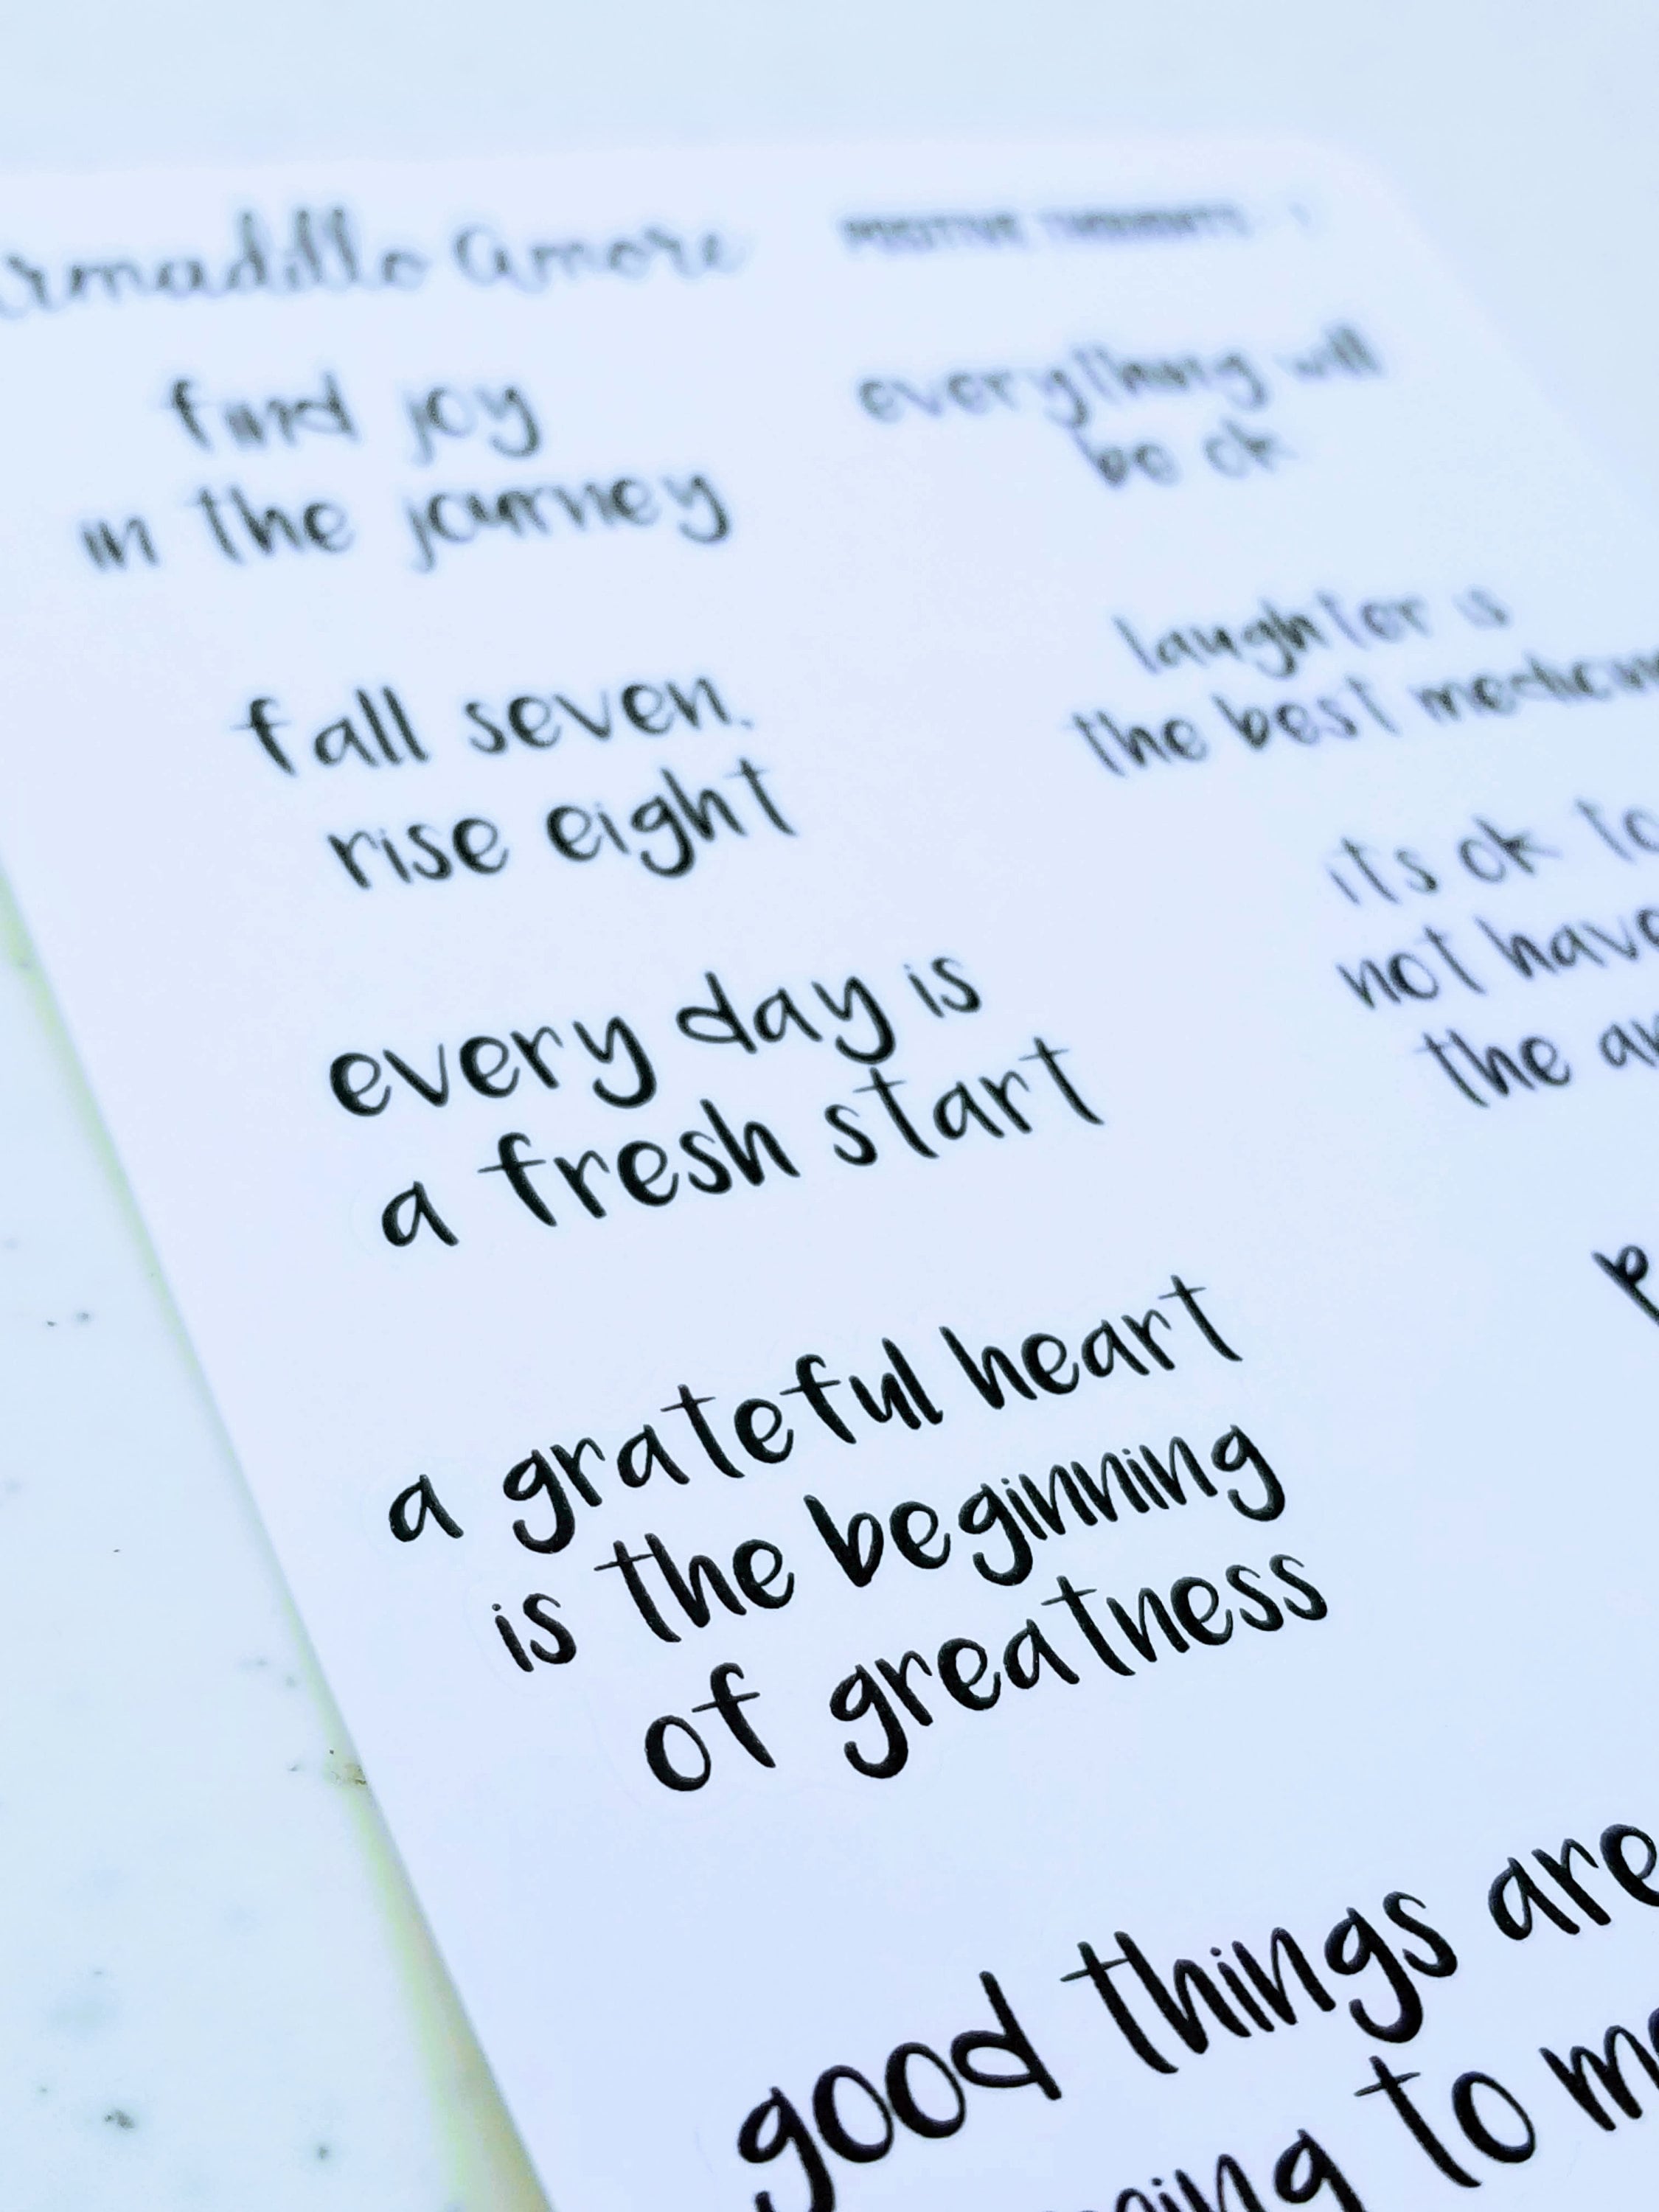 armadillo amore
POSITIVE THOUGHTS
find joy
in the journey
everything will
be ok
fall seven,
rise eight
laughter is
the best medicin
every day is
a fresh start
its ok to
not have
the an
a grateful heart
is the beginning
of greatness
good things are
to me